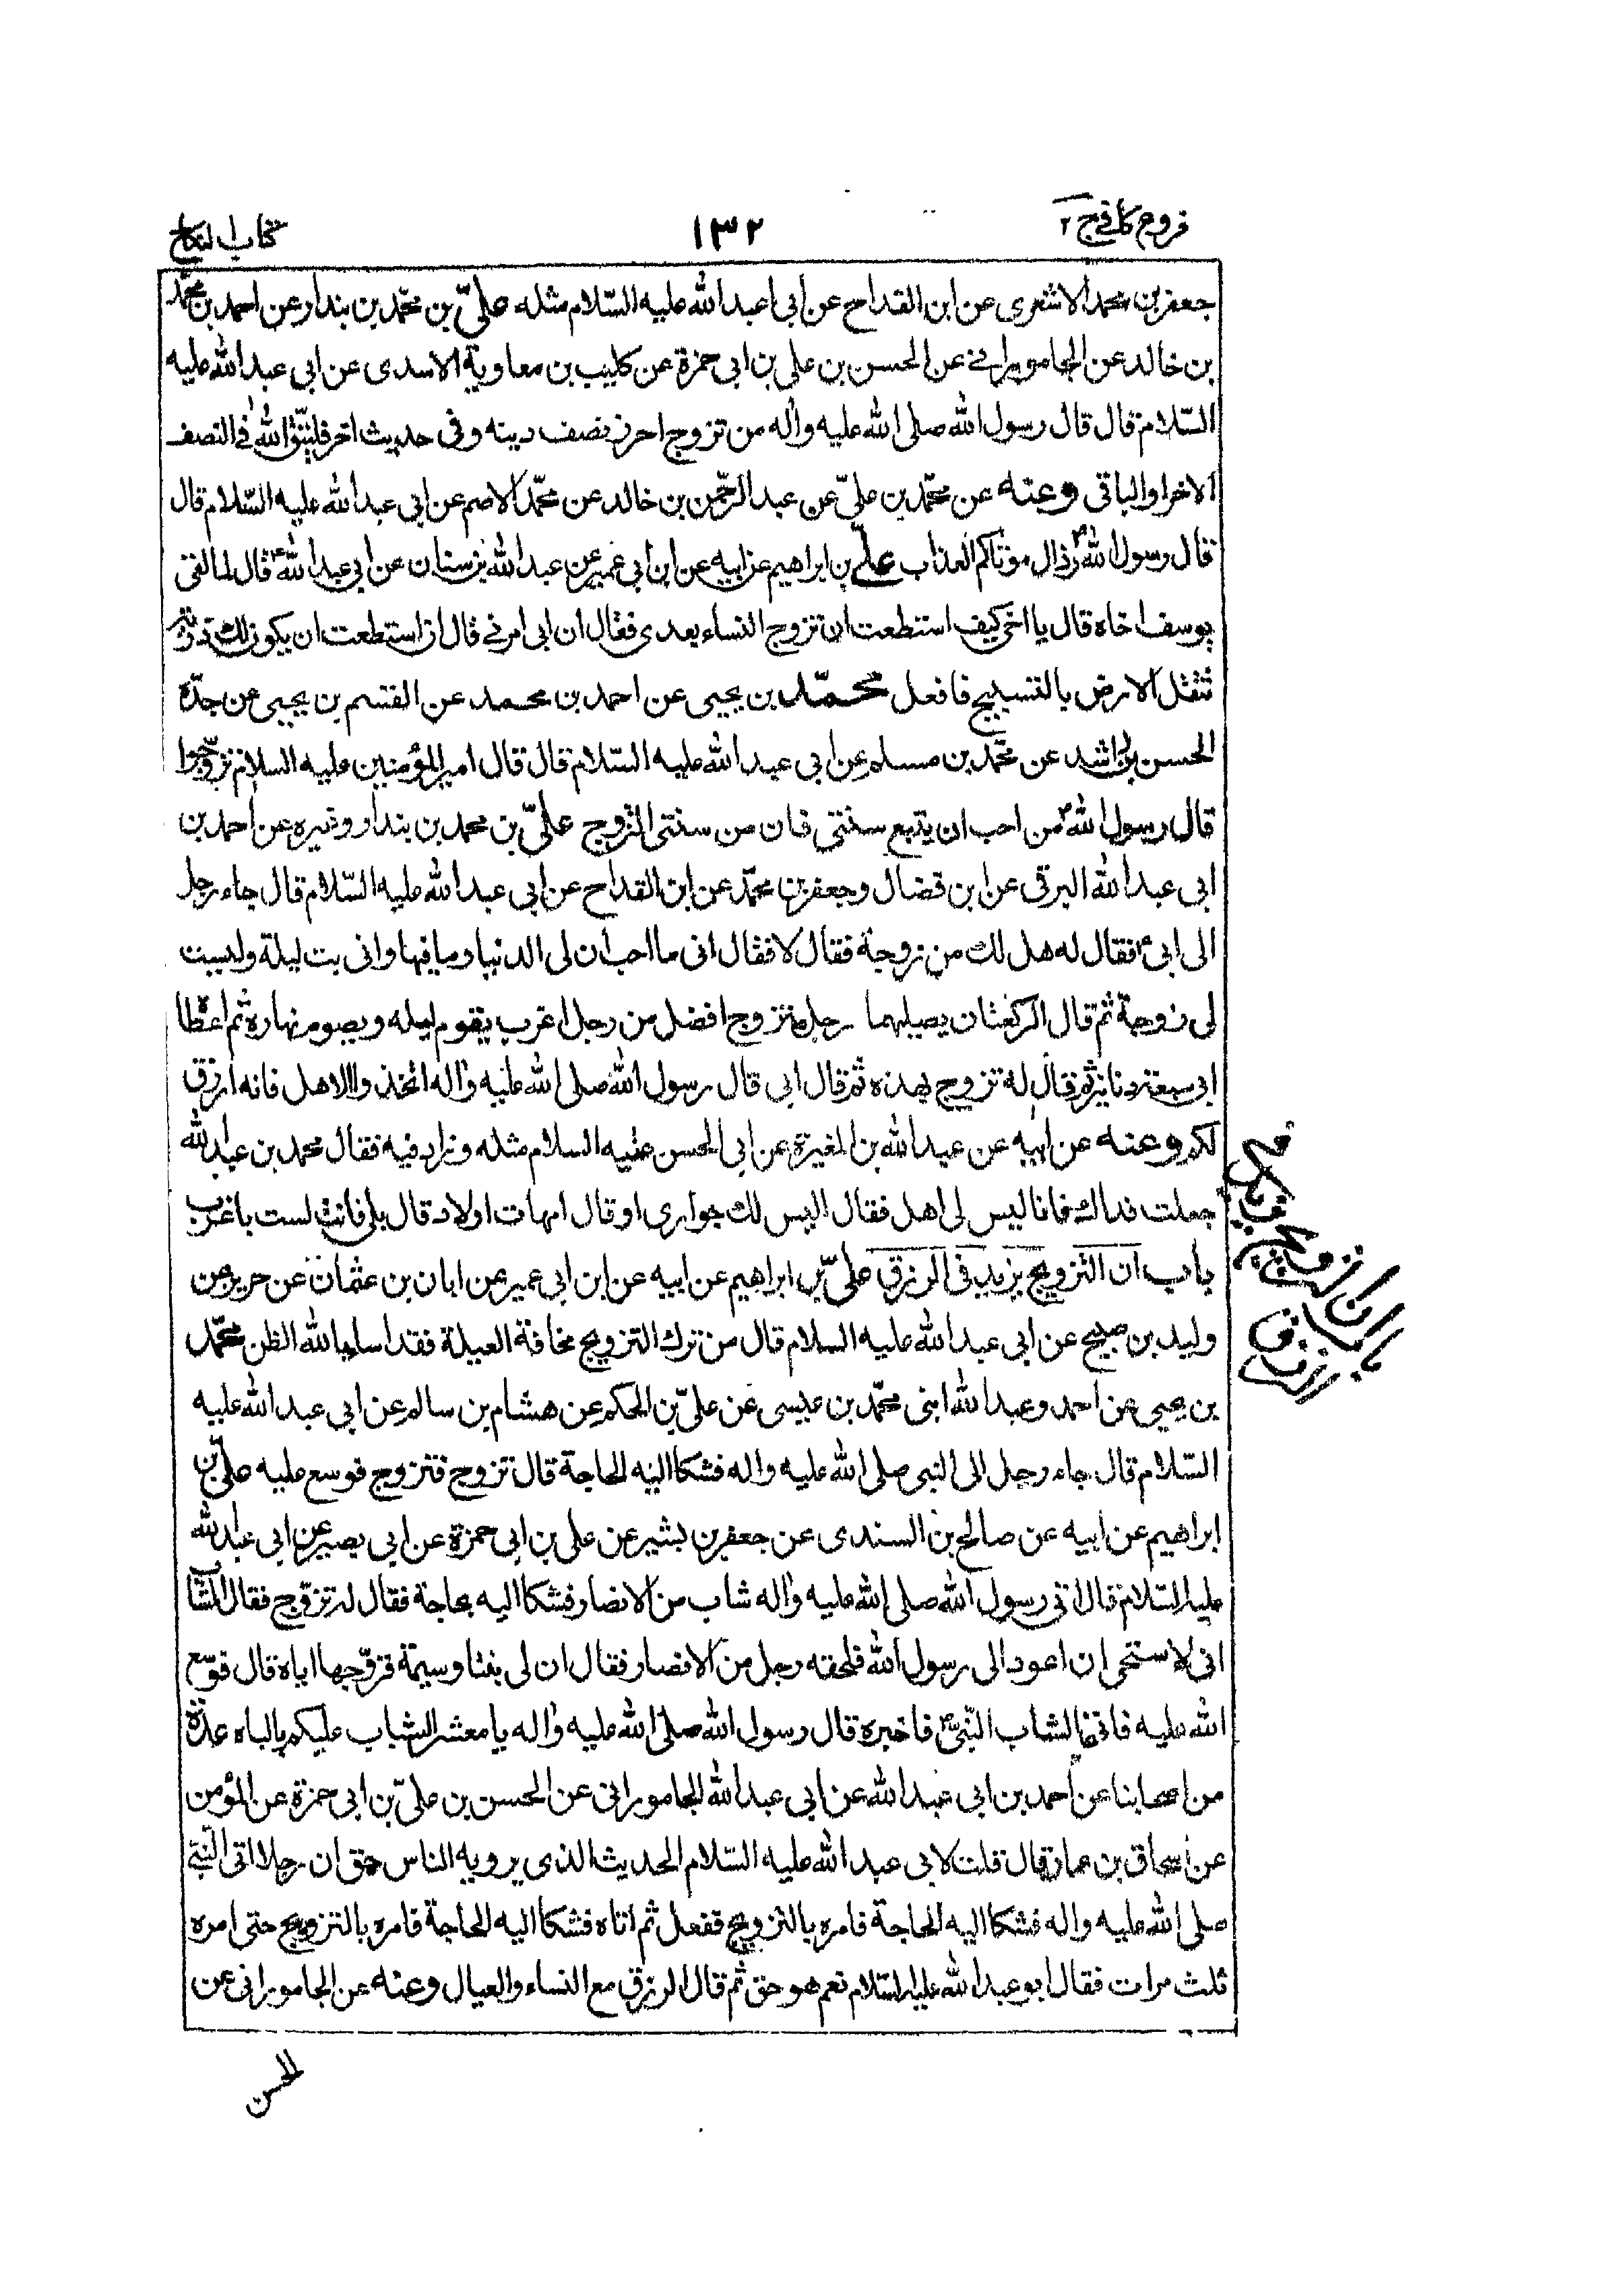 فروع كافي ج ٢
١٣٢
كتاب النكاح
جعفر بن محمد الاشعرى عن ابن القداح عن ابى عبد الله عليه السّلام مثله علىّ بن محمّد بن بندار عن احمد بن محمّد
بن خالد عن الجامورانى عن الحسن بن على بن ابى حمزة عن كليب بن معاوية الاسدى عن ابى عبد الله عليه
السّلام قال قال رسول الله صلى الله عليه واٰله من تزوج احرز نصف دينه وفى حديث اخر فليتّق الله فى النصف
الاخر او الباقى وعنه عن محمّد بن علىّ عن عبد الرحمٰن بن خالد عن محمّد الاصم عن ابى عبد الله عليه السّلام قال
قال رسول الله ص رذال موتاكم العذاب علىّ بن ابراهيم عن ابيه عن ابن ابى عمير عن عبد الله بن سنان عن ابى عبد الله ع قال لما لقى
يوسف اخاه قال يا اخى كيف استطعت ان تزوج النساء بعدى فقال ان ابى امرنى قال ان استطعت ان يكون لك ذرية
تثقل الارض بالتسبيح فافعل محمّد بن يحيى عن احمد بن محمد عن القسم بن يحيى عن جدّه
الحسن بن راشد عن محمّد بن مسلم عن ابى عبد الله عليه السّلام قال قال امير المؤمنين عليه السلام تزوّجوا
قال رسول الله ص من احب ان يتبع سنتى فان من سنتى التزوج علىّ بن محمد بن بندار وغيره عن احمد بن
ابى عبد الله البرقى عن ابن فضال وجعفر بن محمّد عن ابن القداح عن ابى عبد الله عليه السّلام قال جاء رجل
الى ابى ع فقال له هل لك من زوجة فقال لا فقال انى ما احب ان لى الدنيا وما فيها وانى بت ليلة وليست
لى زوجة ثم قال الركعتان يصليهما رجل متزوج افضل من رجل اعزب يقوم ليله ويصوم نهاره ثم اعطاه
ابى سبعة دنانير ثم قال له تزوج بهذه ثم قال ابى قال رسول الله صلى الله عليه واٰله اتخذوا الاهل فانه ارزق
لكم وعنه عن ابيه عن عبد الله بن المغيرة عن ابى الحسن عليه السلام مثله وزاد فيه فقال محمد بن عبد الله
جعلت فداك فانا ليس لى اهل فقال اليس لك جوارى او قال امهات اولاد قال بلى فانت لست باعزب
باب ان التزويج يزيد فى الرزق علىّ بن ابراهيم عن ابيه عن ابن ابى عمير عن ابان بن عثمان عن حريز عن
وليد بن صبيح عن ابى عبد الله عليه السلام قال من ترك التزويج مخافة العيلة فقد اساء بالله الظن محمّد
بن يحيى عن احمد وعبد الله ابنى محمّد بن عيسى عن علىّ بن الحكم عن هشام بن سالم عن ابى عبد الله عليه
السّلام قال جاء رجل الى النبى صلى الله عليه واله فشكا اليه الحاجة قال تزوج فتزوج فوسع عليه علىّ بن
ابراهيم عن ابيه عن صالح بن السندى عن جعفر بن بشير عن على بن ابى حمزة عن ابى بصير عن ابى عبد الله
عليه السّلام قال اتى رسول الله صلى الله عليه واٰله شاب من الانصار فشكا اليه بحاجة فقال له تزوّج فقال الشاب
انى لاستحيى ان اعود الى رسول الله فلحقه رجل من الانصار فقال ان لى بنتا وسيمة فزوّجها اياه قال فوسّع
الله عليه فاتى الشاب النّبىّ ص فاخبره قال رسول الله صلى الله عليه واٰله يا معشر الشباب عليكم بالباه عدّة
من اصحابنا عن احمد بن ابى عبد الله عن ابى عبد الله الجامورانى عن الحسن بن علىّ بن ابى حمزة عن المؤمن
عن اسحاق بن عمار قال قلت لابى عبد الله عليه السّلام الحديث الذى يرويه الناس حق ان رجلا اتى النّبى
صلى الله عليه واله فشكا اليه الحاجة فامره بالتزويج ففعل ثم اتاه فشكا اليه الحاجة فامره بالتزويج حتى امره
ثلث مرات فقال ابو عبد الله عليه السّلام نعم هو حق ثم قال الرزق مع النساء والعيال وعنه عن الجامورانى عن
باب ان التزويج يزيد فى
الرزق
الحسن